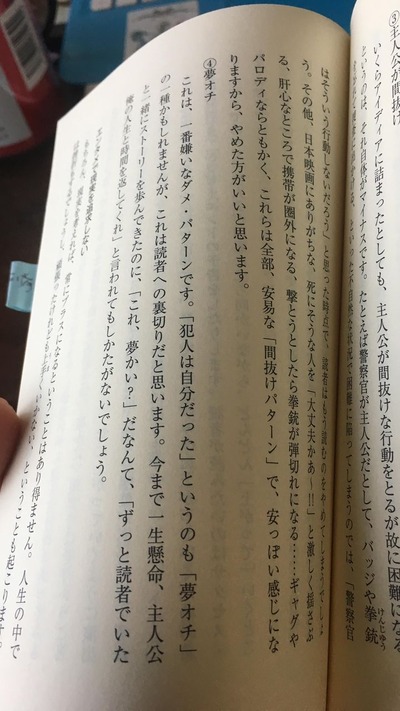 ③主人公が間抜け
いくらアイディアに詰まったとしても、主人公が間抜けな行動をとるが故に困難になる
というのは、それ自体がマイナスです。たとえば警察官が主人公だとして、バッジや拳銃
けんじゅう
な状況で困難に陥ってしまうのでは、「警察官
はそういう行動しないだろう」と思った時点で、読者はもう読むのをやめてしまうでしょ
う。その他、日本映画にありがちな、死にそうな人を「大丈夫かあ〜!!」と激しく揺さぶ
る、肝心なところで携帯が圏外になる、撃とうとしたら拳銃が弾切れになる……ギャグや
パロディならともかく、これらは全部、安易な「間抜けパターン」で、安っぽい感じにな
りますから、やめた方がいいと思います。
④夢オチ
これは、一番嫌いなダメ・パターンです。「犯人は自分だった」というのも「夢オチ」
の一種かもしれませんが、これは読者への裏切りだと思います。今まで一生懸命、主人公
と一緒にストーリーを歩んできたのに、「これ、夢かい?」だなんて、「ずっと読者でいた
俺の人生の時間を返してくれ」と言われてもしかたがないでしょう。
常にプラスになるということはあり得ません。人生の中で
うまくいかない、ということも起こります。